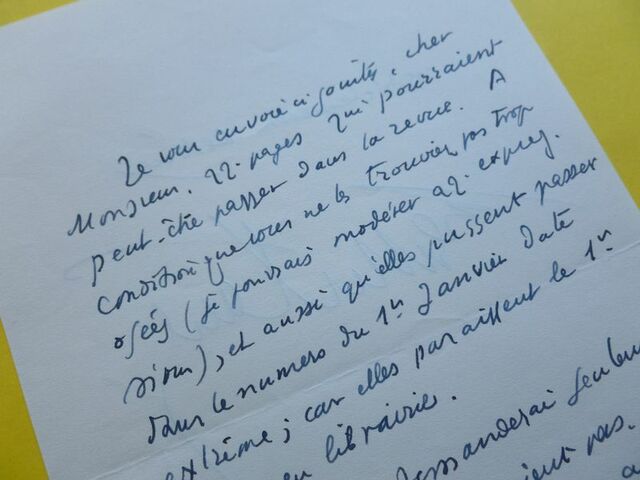 Je vous envoie ci joints, cher
Monsieur, qq. pages qui pourraient
peut-être passer dans la revue. A
condition que vous ne les trouviez pas trop
osées (je pourrais modérer qq. expres-
sions), et aussi qu'elles pussent passer
dans le numero du 1er Janvier date
extrême ; car elles paraissent le 1er
en librairie.
demanderai seulem
ient pas.